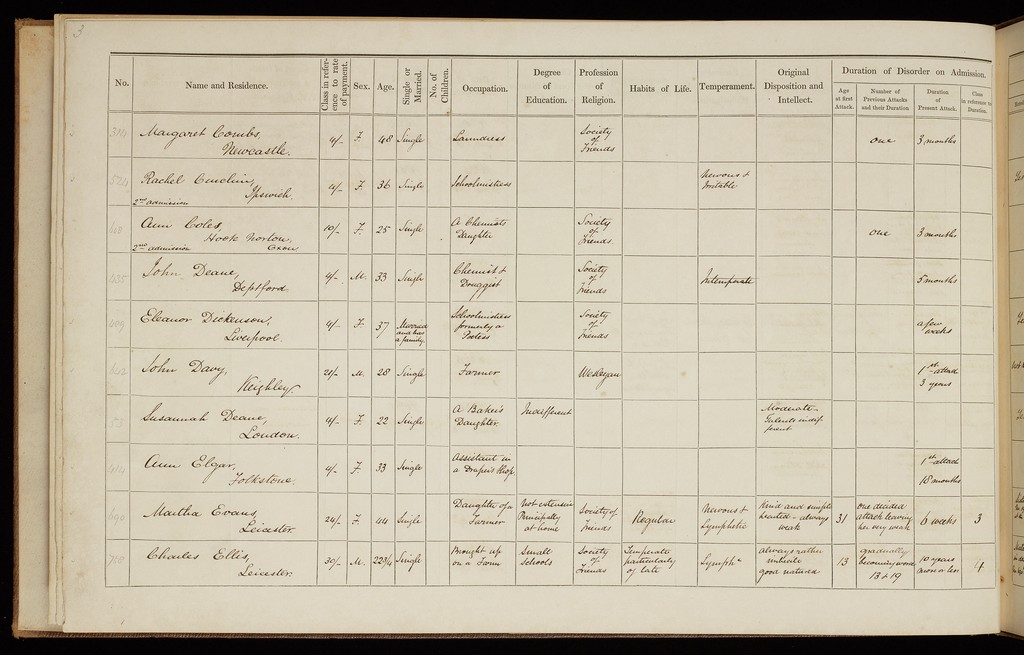 3
No.
Name and Residence.
Class in refer-
ence to rate
of payment.
Sex.
Age.
Single or
Married.
No. of
Children.
Occupation.
Degree
of
Education.
Profession
of
Religion.
Habits of Life.
Temperament.
Original
Disposition and
Intellect.
Duration of Disorder on Admission.
Age
at first
Attack.
Number of
Previous Attacks
and their Duration
Duration
of
Present Attack.
Class
in reference to
Duration.
Margaret Combs,
Newcastle.
4/- F. 48 Single
Laundress
Society
of
Friends
one
3 months
Rachel
Ipswich
2nd admission
4/- F. 36 Single
Schoolmistress
Nervous &
Irritable
Ann Coles,
Hook Norton,
Oxon.
2nd admission
10/- F. 25 Single
A Chemists
Daughter
Society
of
Friends.
one
3 months
John Deane,
Deptford.
4/- M. 33 Single
Chemist &
Druggist
Society
of
Friends
Intemperate
5 months
Eleanor Dickenson,
Liverpool.
4/- F. 37
Married
and has
a family
Schoolmistress
formerly a
Society
of
Friends
a few
weeks
John Davy,
Keighley.
M. 28 Single
Farmer
Wesleyan
1st attack
3 years
Susannah Deane,
London.
4/- F. 22 Single
A Baker's
Daughter.
Indifferent
Moderate-
Talents indif-
ferent
Ann Elgar,
Folkstone.
4/- F. 33 Single
Assistant in
a Draper's Shop.
1st attack
18 months
Martha Evans,
Leicester
24/- F. 44 Single
Daughter of a
Farmer
Not extensive
Principally
at home
Society of
Friends
Regular
Nervous &
Lymphatic
Kind and simple
hearted - always
weak
31
one decided
attack leaving
her very weak
6 weeks
3
Charles Ellis,
Leicester.
30/- M. 22 3/4 Single
Brought up
on a Farm
Small
Schools
Society
of
Friends
Temperate
particularly
of late
Lymphc
always rather
good natured
13
gradually
becoming worse
13 & 19
10 years
more or less
4